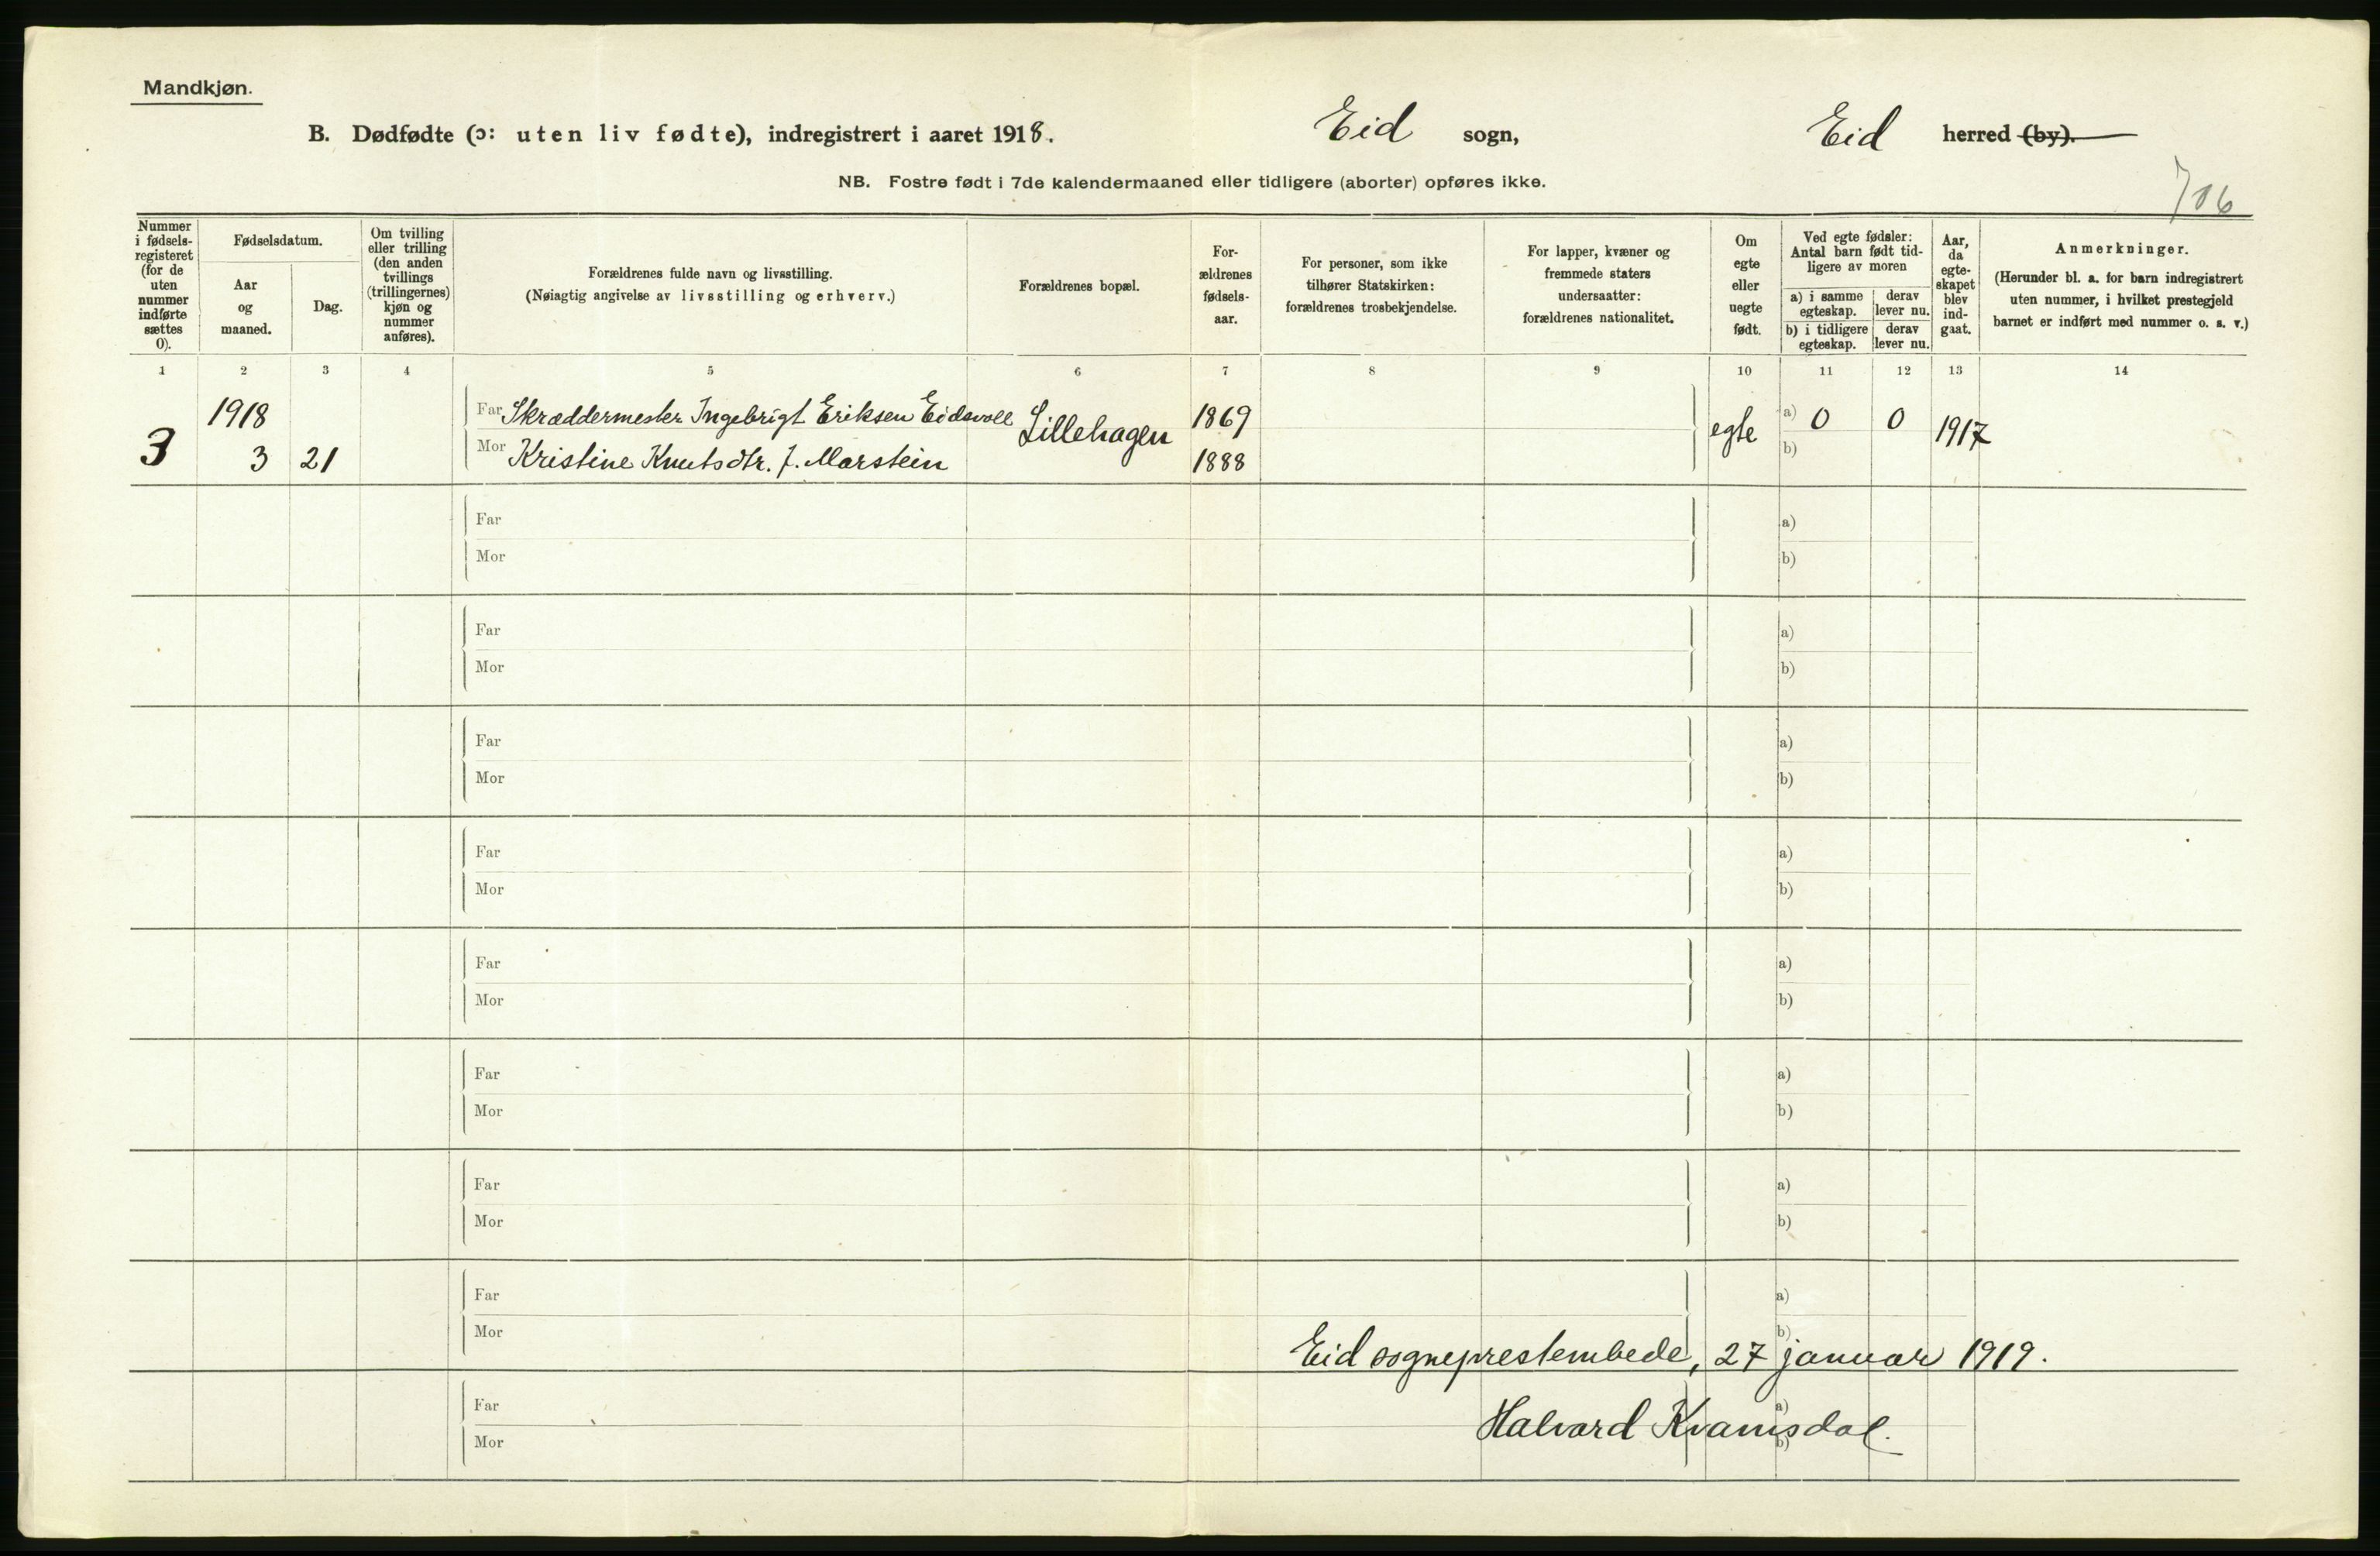 Mandkjøn.
B. Dødfødte (ɔ: uten liv fødte), indregistrert i aaret 1918. Eid sogn, Eid herred (by).
NB. Fostre født i 7de kalendermaaned eller tidligere (aborter) opføres ikke.
706
Nummer i fødsels-registeret (for de uten nummer indførte sættes 0).
Fødselsdatum.
Aar og maaned.
Dag.
Om tvilling eller trilling (den anden tvillings (trillingernes) kjøn og nummer anføres).
Forældrenes fulde navn og livsstilling.
(Nøiagtig angivelse av livsstilling og erhverv.)
Forældrenes bopæl.
For-ældrenes fødsels-aar.
For personer, som ikke tilhører Statskirken: forældrenes trosbekjendelse.
For lapper, kvæner og fremmede staters undersaatter: forældrenes nationalitet.
Om egte eller uegte født.
Ved egte fødsler: Antal barn født tid-ligere av moren
a) i samme egteskap.
derav lever nu.
b) i tidligere egteskap.
derav lever nu.
Aar, da egte-skapet blev ind-gaat.
Anmerkninger.
(Herunder bl. a. for barn indregistrert uten nummer, i hvilket prestegjeld barnet er indført med nummer o. s. v.)
1 2 3 4 5 6 7 8 9 10 11 12 13 14
3 1918 3 21
Far Skræddermester Ingebrigt Eriksen Eidsvoll Lillehagen 1869 egte a) 0 0 1917
Mor Kristine Knutsdtr. f. Marstein 1888 b)
Far a)
Mor b)
Far a)
Mor b)
Far a)
Mor b)
Far a)
Mor b)
Far a)
Mor b)
Far a)
Mor b)
Far a)
Mor b)
Far a)
Mor b)
Eid sogneprestembede, 27 januar 1919.
Far a)
Halvard Kvamsdal.
Mor b)